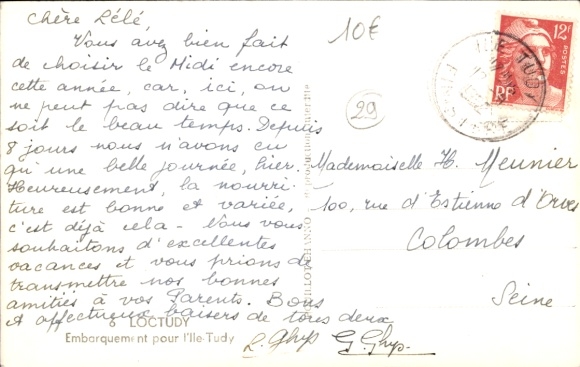 Chère Lélé,
Vous avez bien fait
de choisir le Midi encore
cette année, car, ici, on
ne peut pas dire que ce
soit le beau temps. Depuis
8 jours nous n'avons eu
qu'une belle journée, hier.
Heureusement, la nourri-
ture est bonne et variée,
c'est déjà cela - Nous vous
souhaitons d'excellentes
vacances et vous prions de
transmettre nos bonnes
amitiés à vos Parents. Bons
et affectueux baisers de tous deux
6 LOCTUDY
Embarquement pour l'Ile-Tudy
10€
29
12F
POSTES
RF
ILE-TUDY
FINISTERE
Mademoiselle H. Meunier
100, rue d'Estienne d'Orves
Colombes
Seine